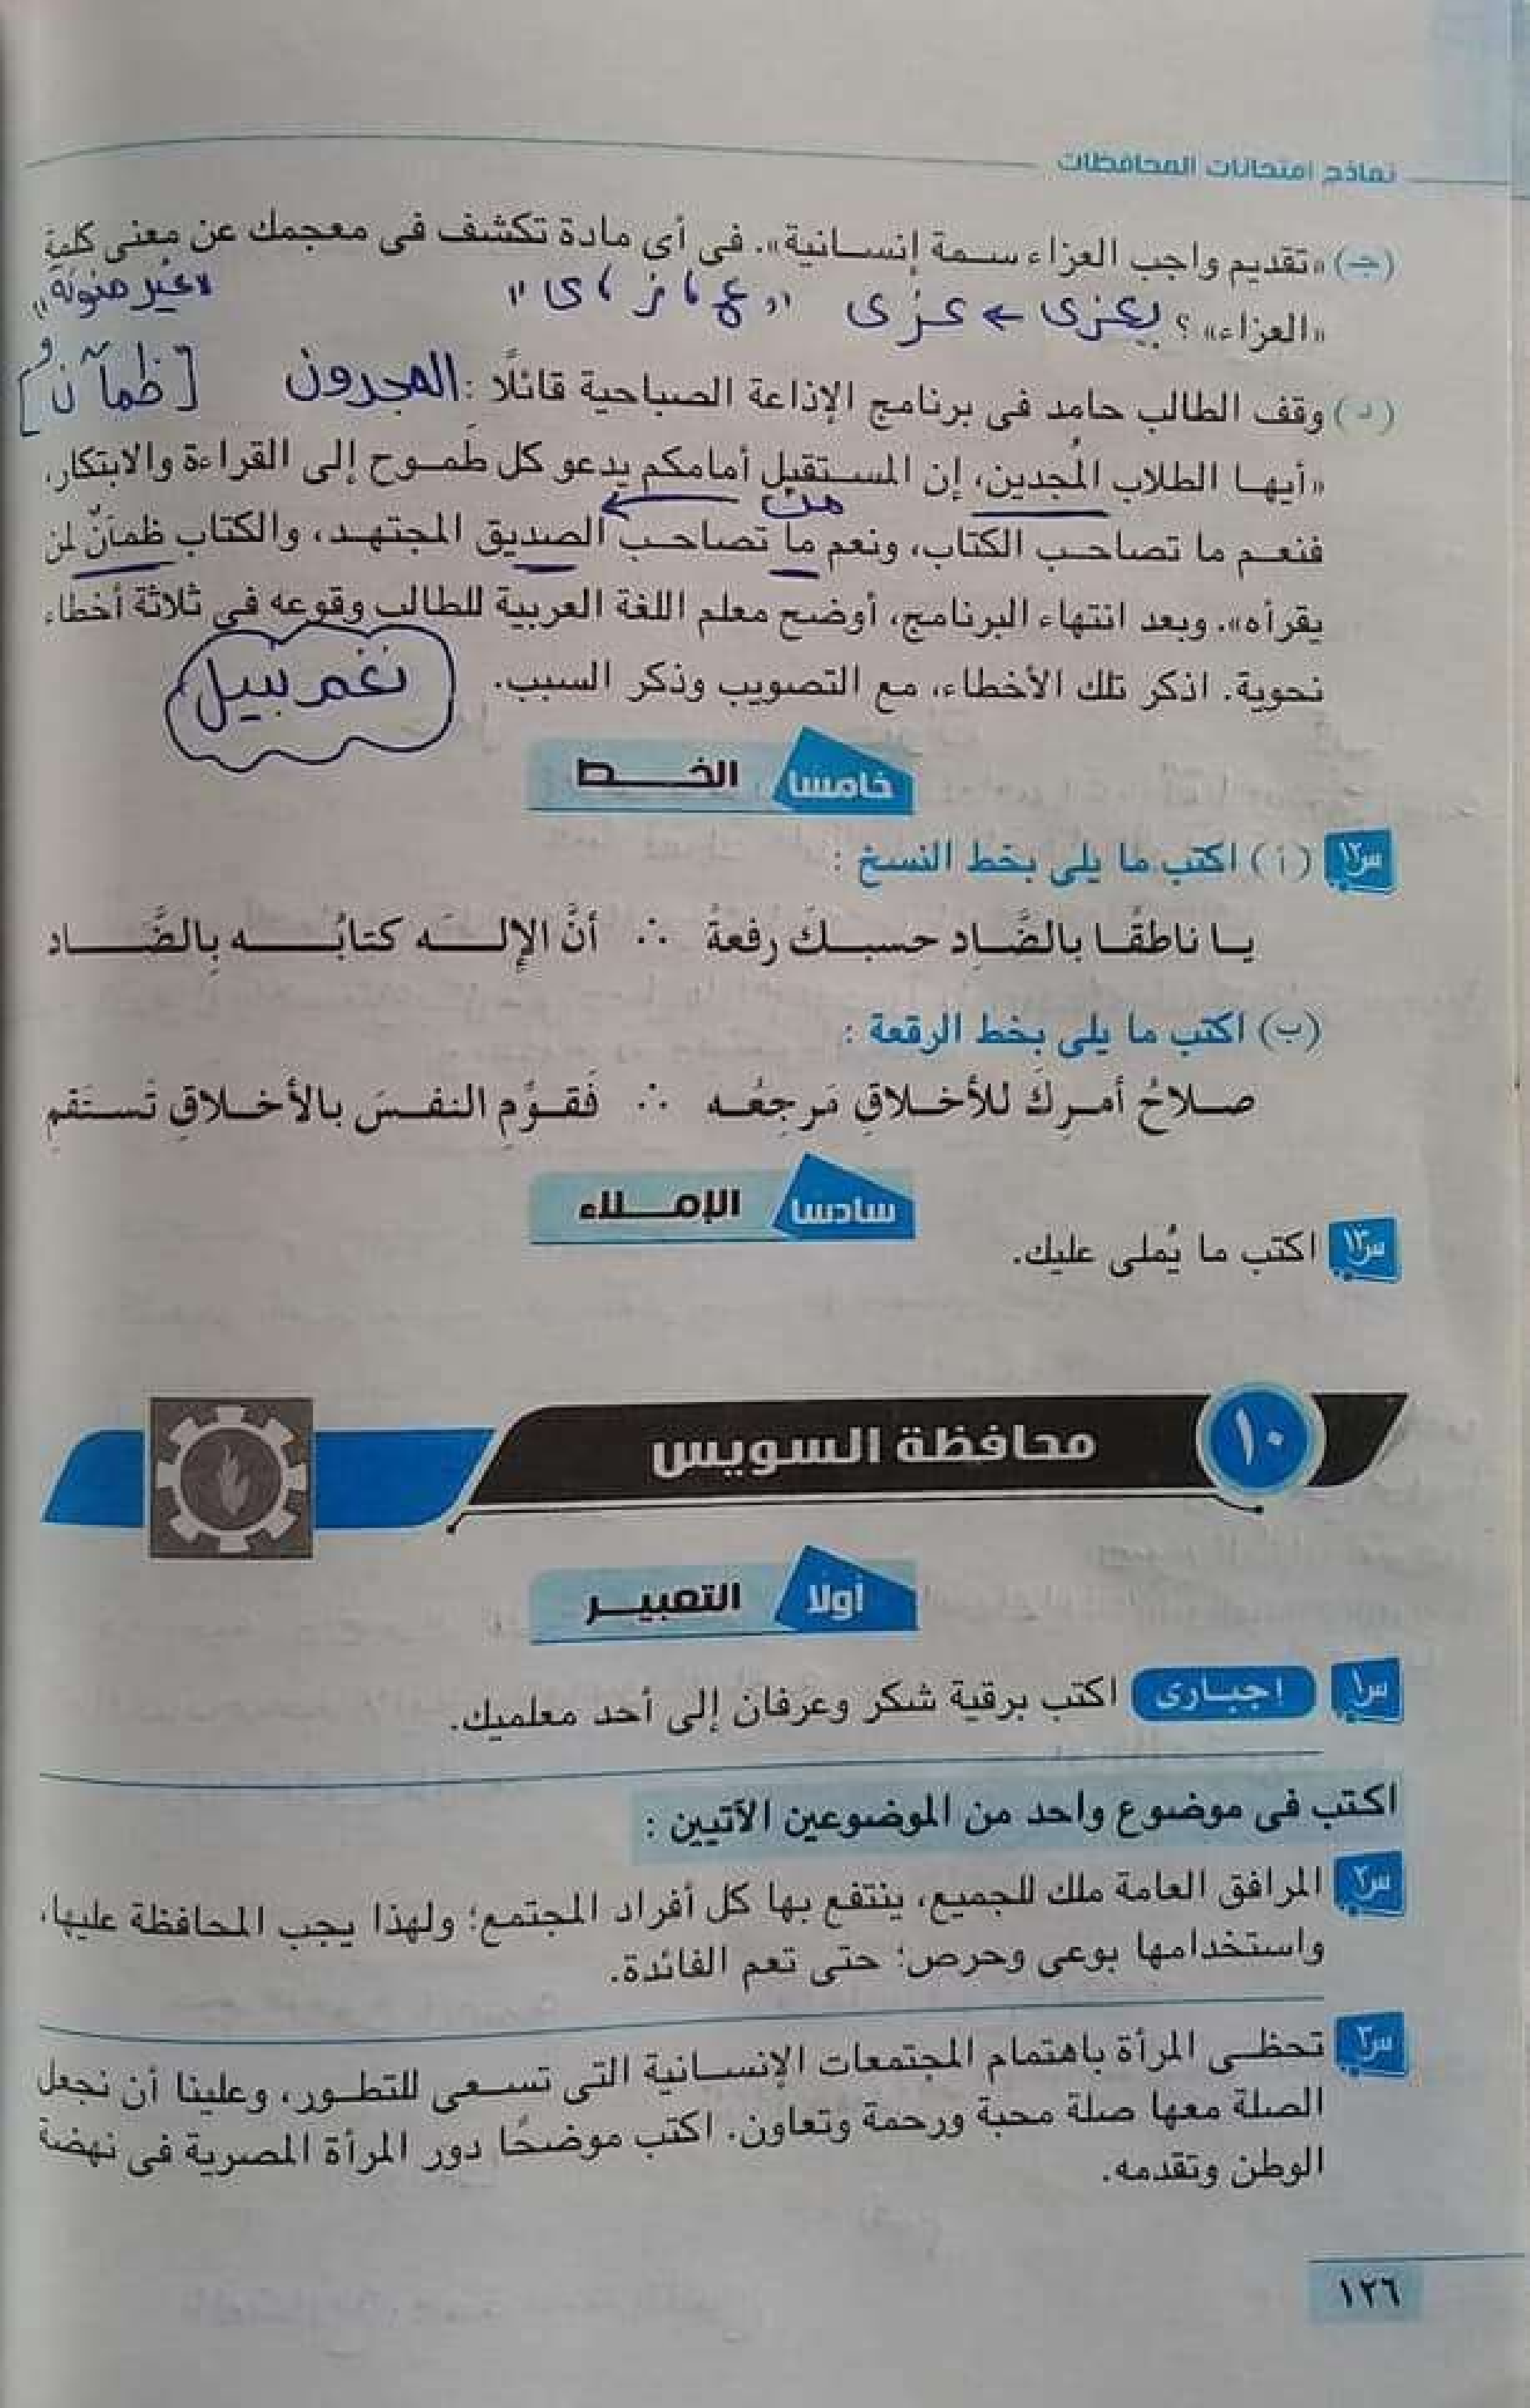 نماذج امتحانات المحافظات
(جـ) «تقديم واجب العزاء سمة إنسانية». فى أى مادة تكشف فى معجمك عن معنى كلمة
«العزاء» ؟ يعزى ← عزى «ع، ز، ى» «غير منونة»
(د) وقف الطالب حامد فى برنامج الإذاعة الصباحية قائلًا : المجدون [ظمآنُ]
«أيها الطلاب المُجدين، إن المستقبل أمامكم يدعو كل طَموح إلى القراءة والابتكار،
من
فنعم ما تصاحب الكتاب، ونعم ما تصاحب الصديق المجتهد، والكتاب ظمآنٌ لمن
يقرأه». وبعد انتهاء البرنامج، أوضح معلم اللغة العربية للطالب وقوعه فى ثلاثة أخطاء
نحوية. اذكر تلك الأخطاء، مع التصويب وذكر السبب.
نغم نبيل
خامسا الخط
س١٢ (أ) اكتب ما يلى بخط النسخ :
يا ناطقًا بالضَّادِ حسبكَ رفعةً ∴ أنَّ الإلهَ كتابُه بالضَّاد
(ب) اكتب ما يلى بخط الرقعة :
صلاحُ أمرِكَ للأخلاقِ مَرجِعُه ∴ فَقوِّمِ النفسَ بالأخلاقِ تَستَقمِ
سادسا الإملاء
س١٣ اكتب ما يُملى عليك.
١٠ محافظة السويس
أولا التعبير
س١ إجبارى اكتب برقية شكر وعرفان إلى أحد معلميك.
اكتب فى موضوع واحد من الموضوعين الآتيين :
س٢ المرافق العامة ملك للجميع، ينتفع بها كل أفراد المجتمع؛ ولهذا يجب المحافظة عليها،
واستخدامها بوعى وحرص؛ حتى تعم الفائدة.
س٣ تحظى المرأة باهتمام المجتمعات الإنسانية التى تسعى للتطور، وعلينا أن نجعل
الصلة معها صلة محبة ورحمة وتعاون. اكتب موضحًا دور المرأة المصرية فى نهضة
الوطن وتقدمه.
١٢٦